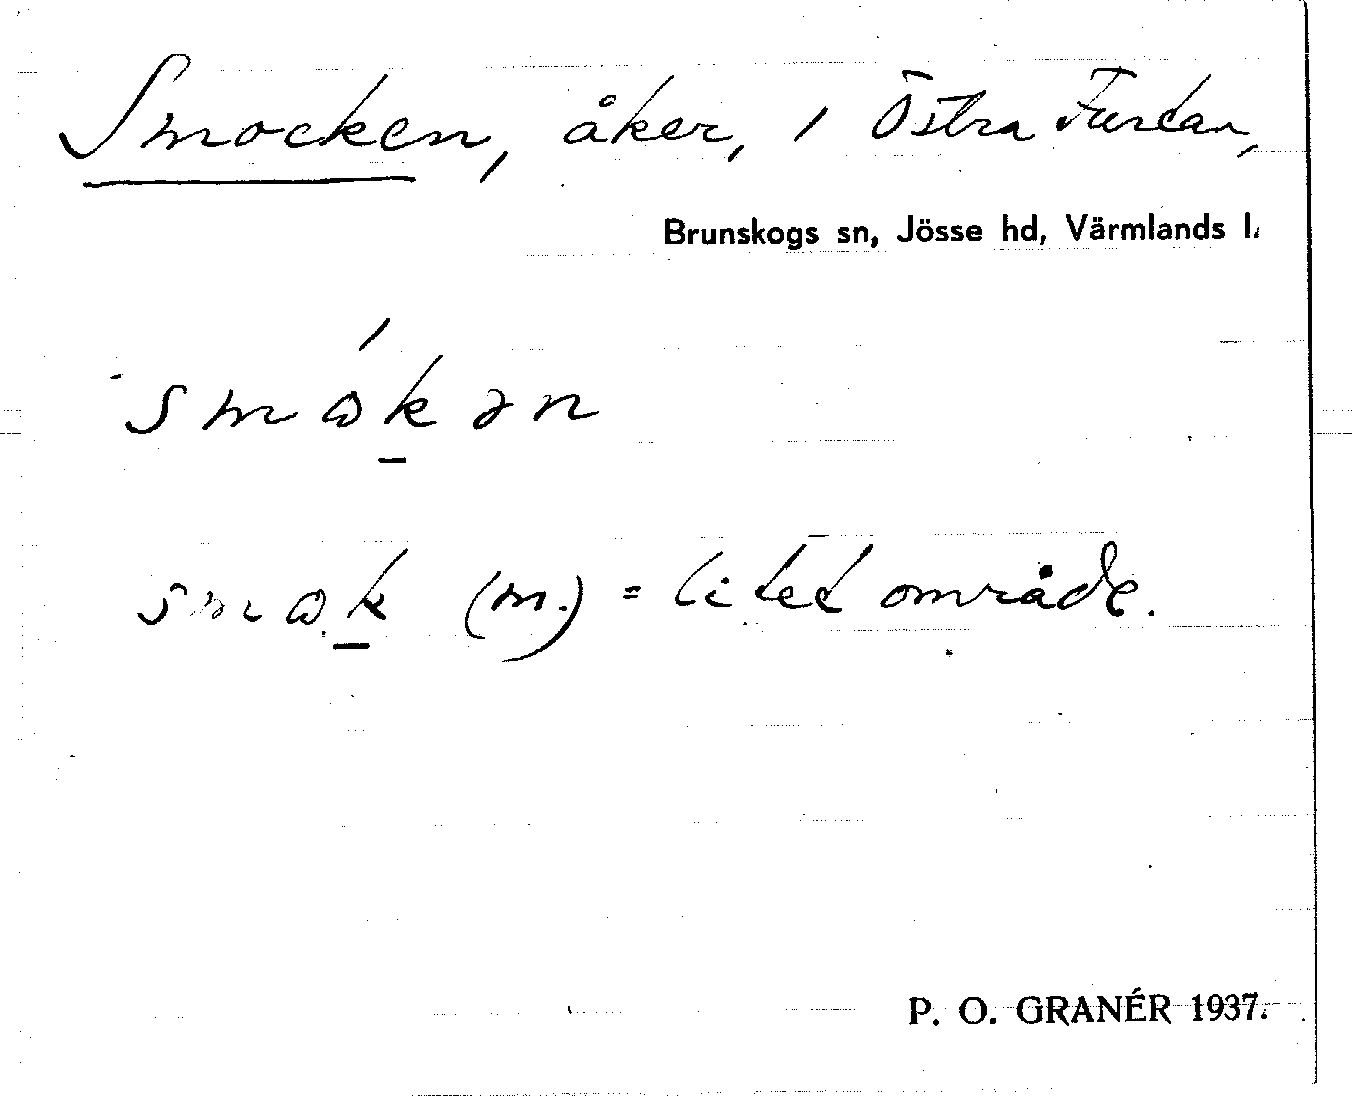 Smocken, åker, i Östra Furtan,
Brunskogs sn, Jösse hd, Värmlands l.
smòkən
smok (m.) = litet område.
P. O. GRANÉR 1937.